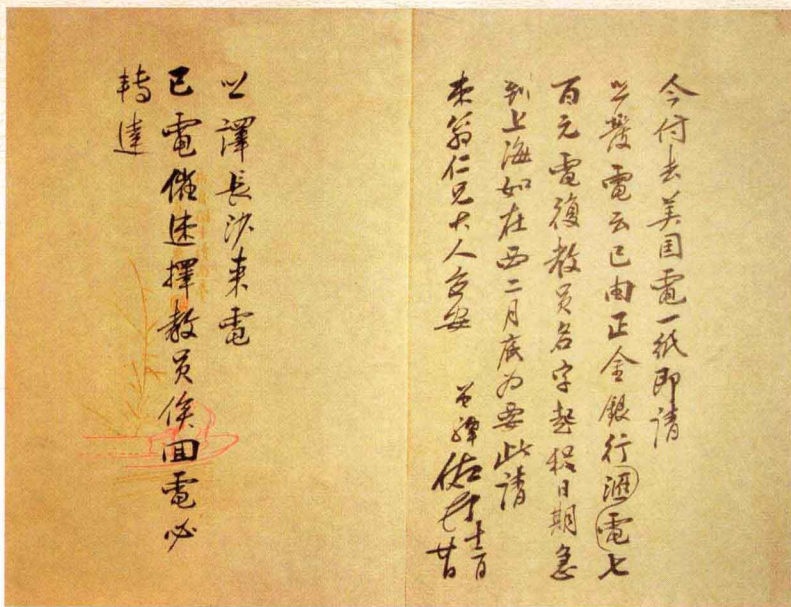 今付去美国電一紙即請
發電云已由正金銀行匯電七
百元電復教员名字起程日期急
到上海如在西二月底为要此請
東翁仁兄大人
十二月
譯長沙來電
已電催速擇教员俟回電必
轉達